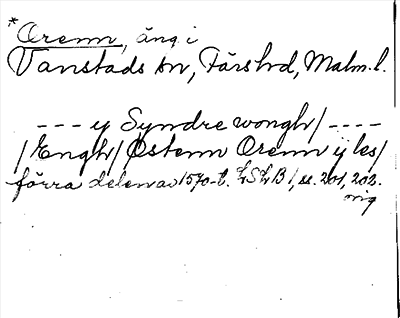 * Orenn, äng i
Vanstads sn, Färs hd, Malm. l.
--- y Syndre wongh/ ----
/Engh/ Østenn Orenn ÿ les/
förra delen av 1570-t. LSLB 1, s. 201, 202.
orig